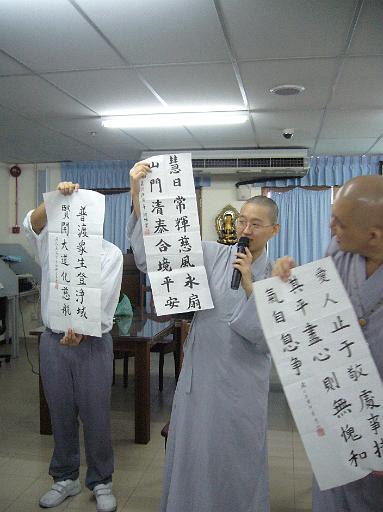 普渡眾生登淨域
賢開大道化慈航
慧日常輝慈風永扇
山門清泰合境平安
愛人止于敬處事持
其平盡心則無愧和
氣自息爭